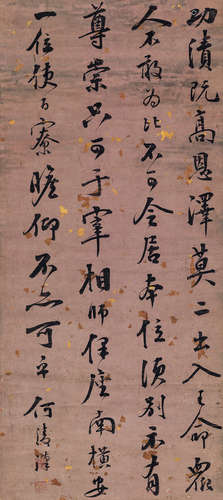 勛績既高恩澤莫二出入王命衆
人不敢為比不可令居本位須別示有
尊崇只可于宰相師保座南橫安
一位使百寮瞻仰不亦可乎 何